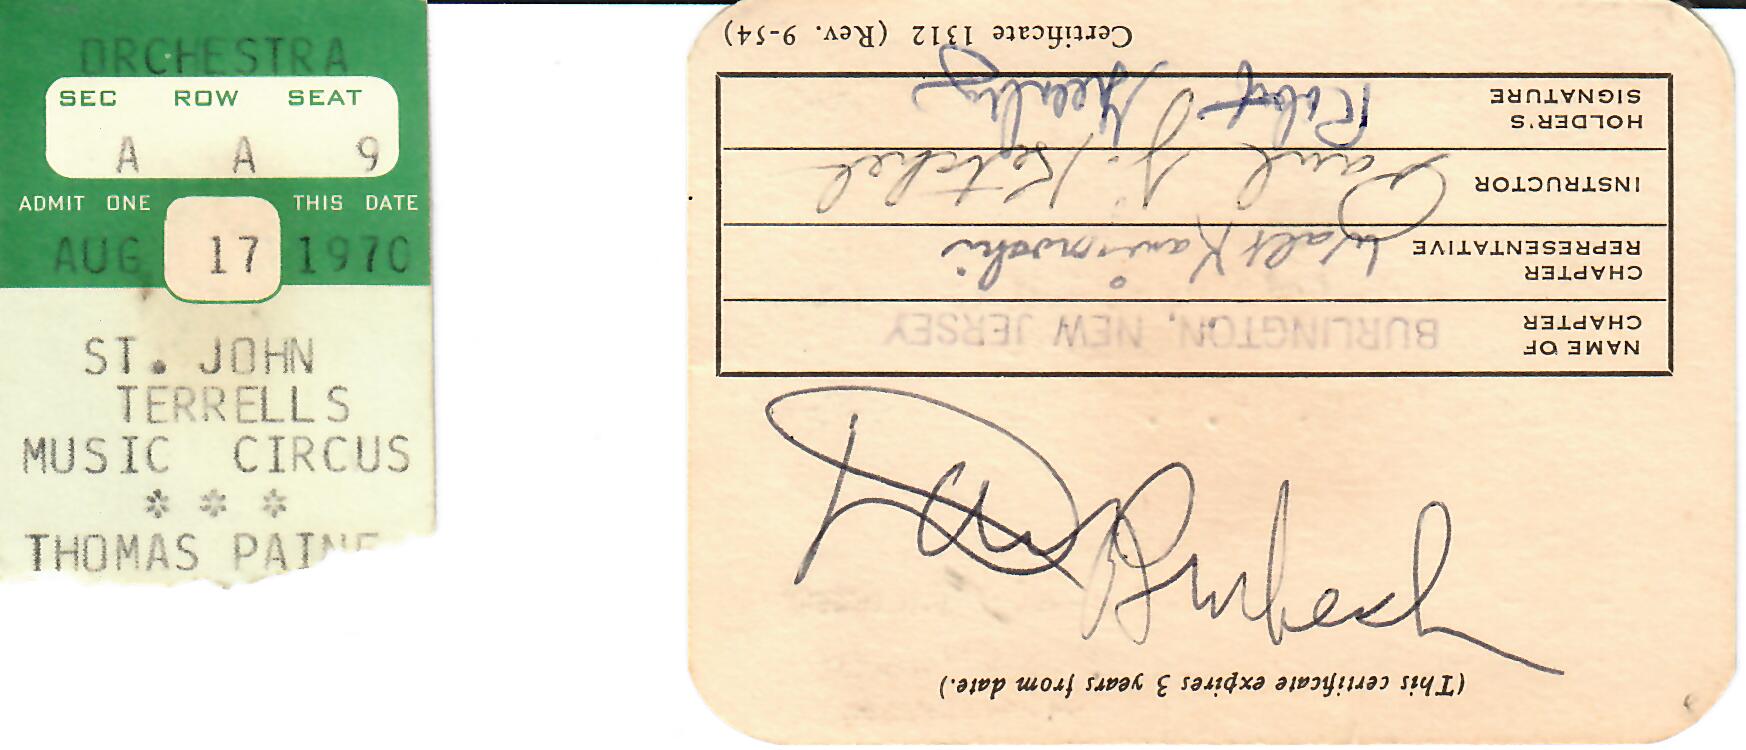 ORCHESTRA
SEC ROW SEAT
A A 9
ADMIT ONE THIS DATE
AUG 17 1970
ST. JOHN
TERRELLS
MUSIC CIRCUS
* * *
THOMAS PAINE
(This certificate expires 3 years from date.)
NAME OF CHAPTER BURLINGTON, NEW JERSEY
CHAPTER REPRESENTATIVE Walt
INSTRUCTOR Paul J.
HOLDER'S SIGNATURE Robert
Certificate 1312 (Rev. 9-54)
Dave Brubeck